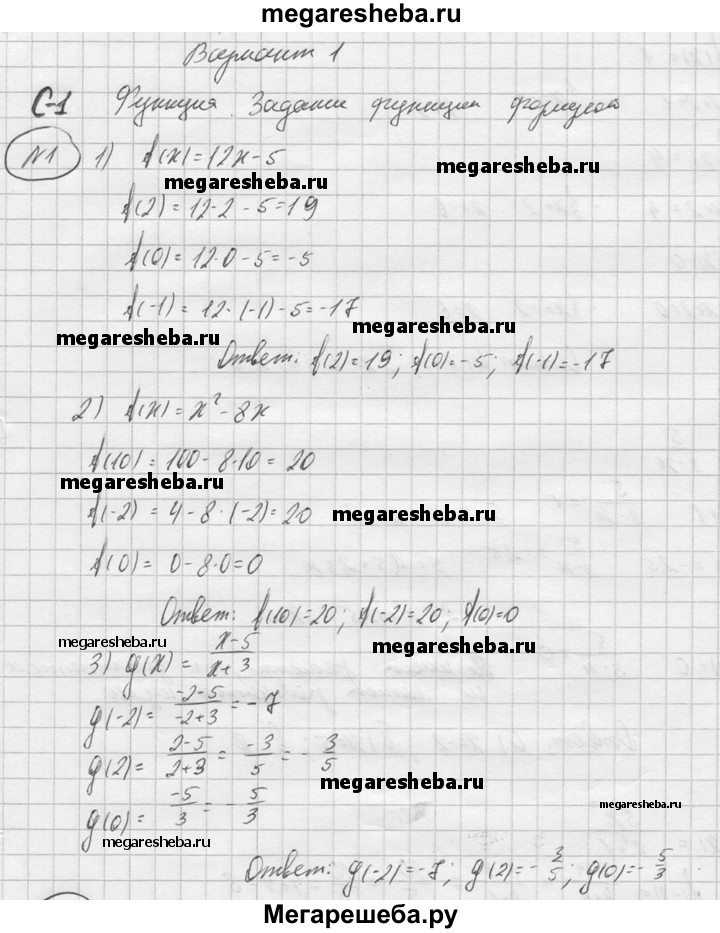 megaresheba.ru
Вариант 1
С-1 Функция. Задание функции формулой
№1 1) f(x) = 12x - 5
megaresheba.ru
megaresheba.ru
f(2) = 12·2 - 5 = 19
f(0) = 12·0 - 5 = -5
f(-1) = 12·(-1) - 5 = -17
megaresheba.ru
megaresheba.ru
Ответ: f(2) = 19; f(0) = -5; f(-1) = -17
2) f(x) = x² - 8x
f(10) = 100 - 8·10 = 20
megaresheba.ru
f(-2) = 4 - 8·(-2) = 20
megaresheba.ru
f(0) = 0 - 8·0 = 0
Ответ: f(10) = 20; f(-2) = 20; f(0) = 0
megaresheba.ru
megaresheba.ru
3) g(x) = (x-5)/(x+3)
g(-2) = (-2-5)/(-2+3) = -7
g(2) = (2-5)/(2+3) = -3/5 = -3/5
megaresheba.ru
megaresheba.ru
g(0) = -5/3 = -5/3
megaresheba.ru
Ответ: g(-2) = -7; g(2) = -3/5; g(0) = -5/3
Мегарешеба.ру